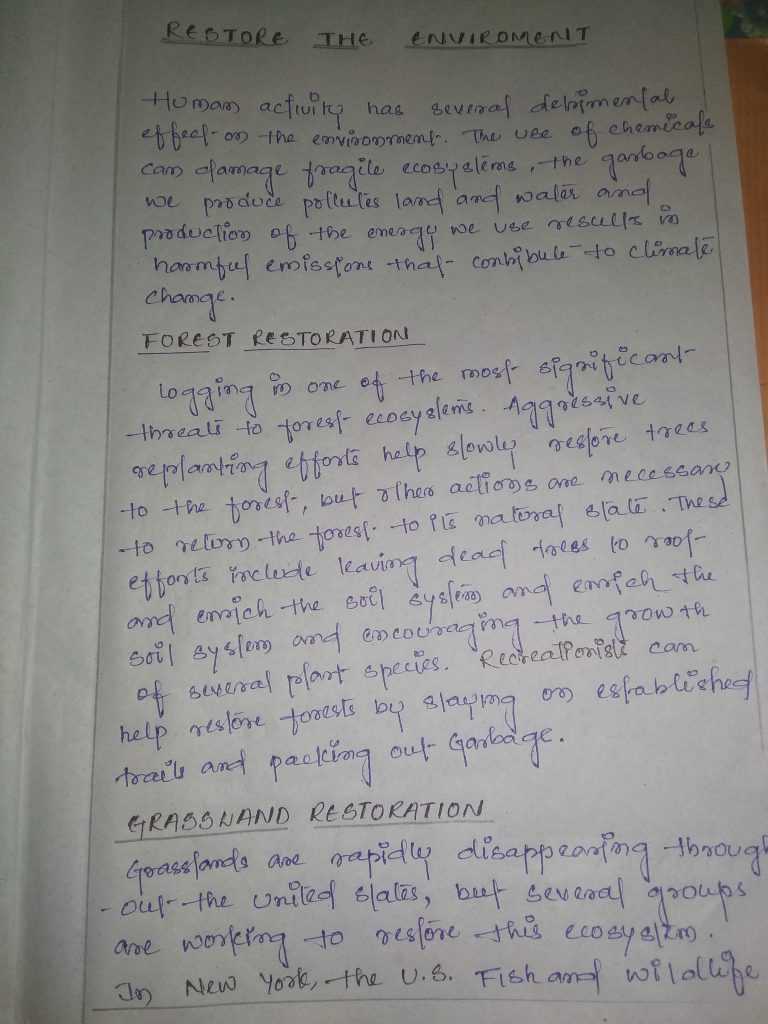 RESTORE THE ENVIROMENT
Human activity has several detrimental
effect on the environment. The use of chemicals
can damage fragile ecosystems, the garbage
we produce pollutes land and water and
production of the energy we use results in
harmful emissions that contribute to climate
change.
FOREST RESTORATION
Logging in one of the most significant
threats to forest ecosystems. Aggressive
replanting efforts help slowly restore trees
to the forest, but other actions are necessary
to return the forest to its natural state. These
efforts include leaving dead trees to roof
and enrich the soil system and enrich the
soil system and encouraging the growth
of several plant species. Recreationists can
help restore forests by staying on established
trails and packing out Garbage.
GRASSLAND RESTORATION
Grasslands are rapidly disappearing through
- out the united states, but several groups
are working to restore this ecosystem.
In New York, the U.S. Fish and wildlife